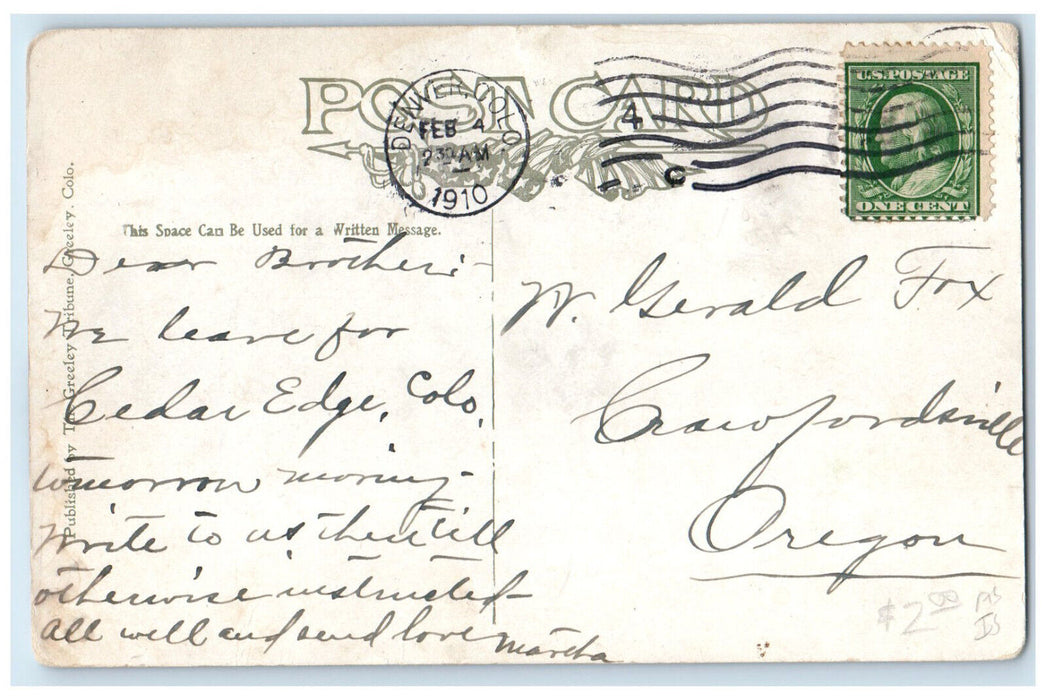 POST CARD
DENVER, COLO.
FEB 4
2 30 AM
1910
4
C
U.S. POSTAGE
ONE CENT
This Space Can Be Used for a Written Message.
Published by The Greeley Tribune, Greeley, Colo.
Dear Brother:-
We leave for
Cedar Edge, Colo.
tomorrow morning-
Write to us there till
otherwise instructed-
All well and send love
Martha
W. Gerald Fox
Crawfordsville
Oregon
$2.00